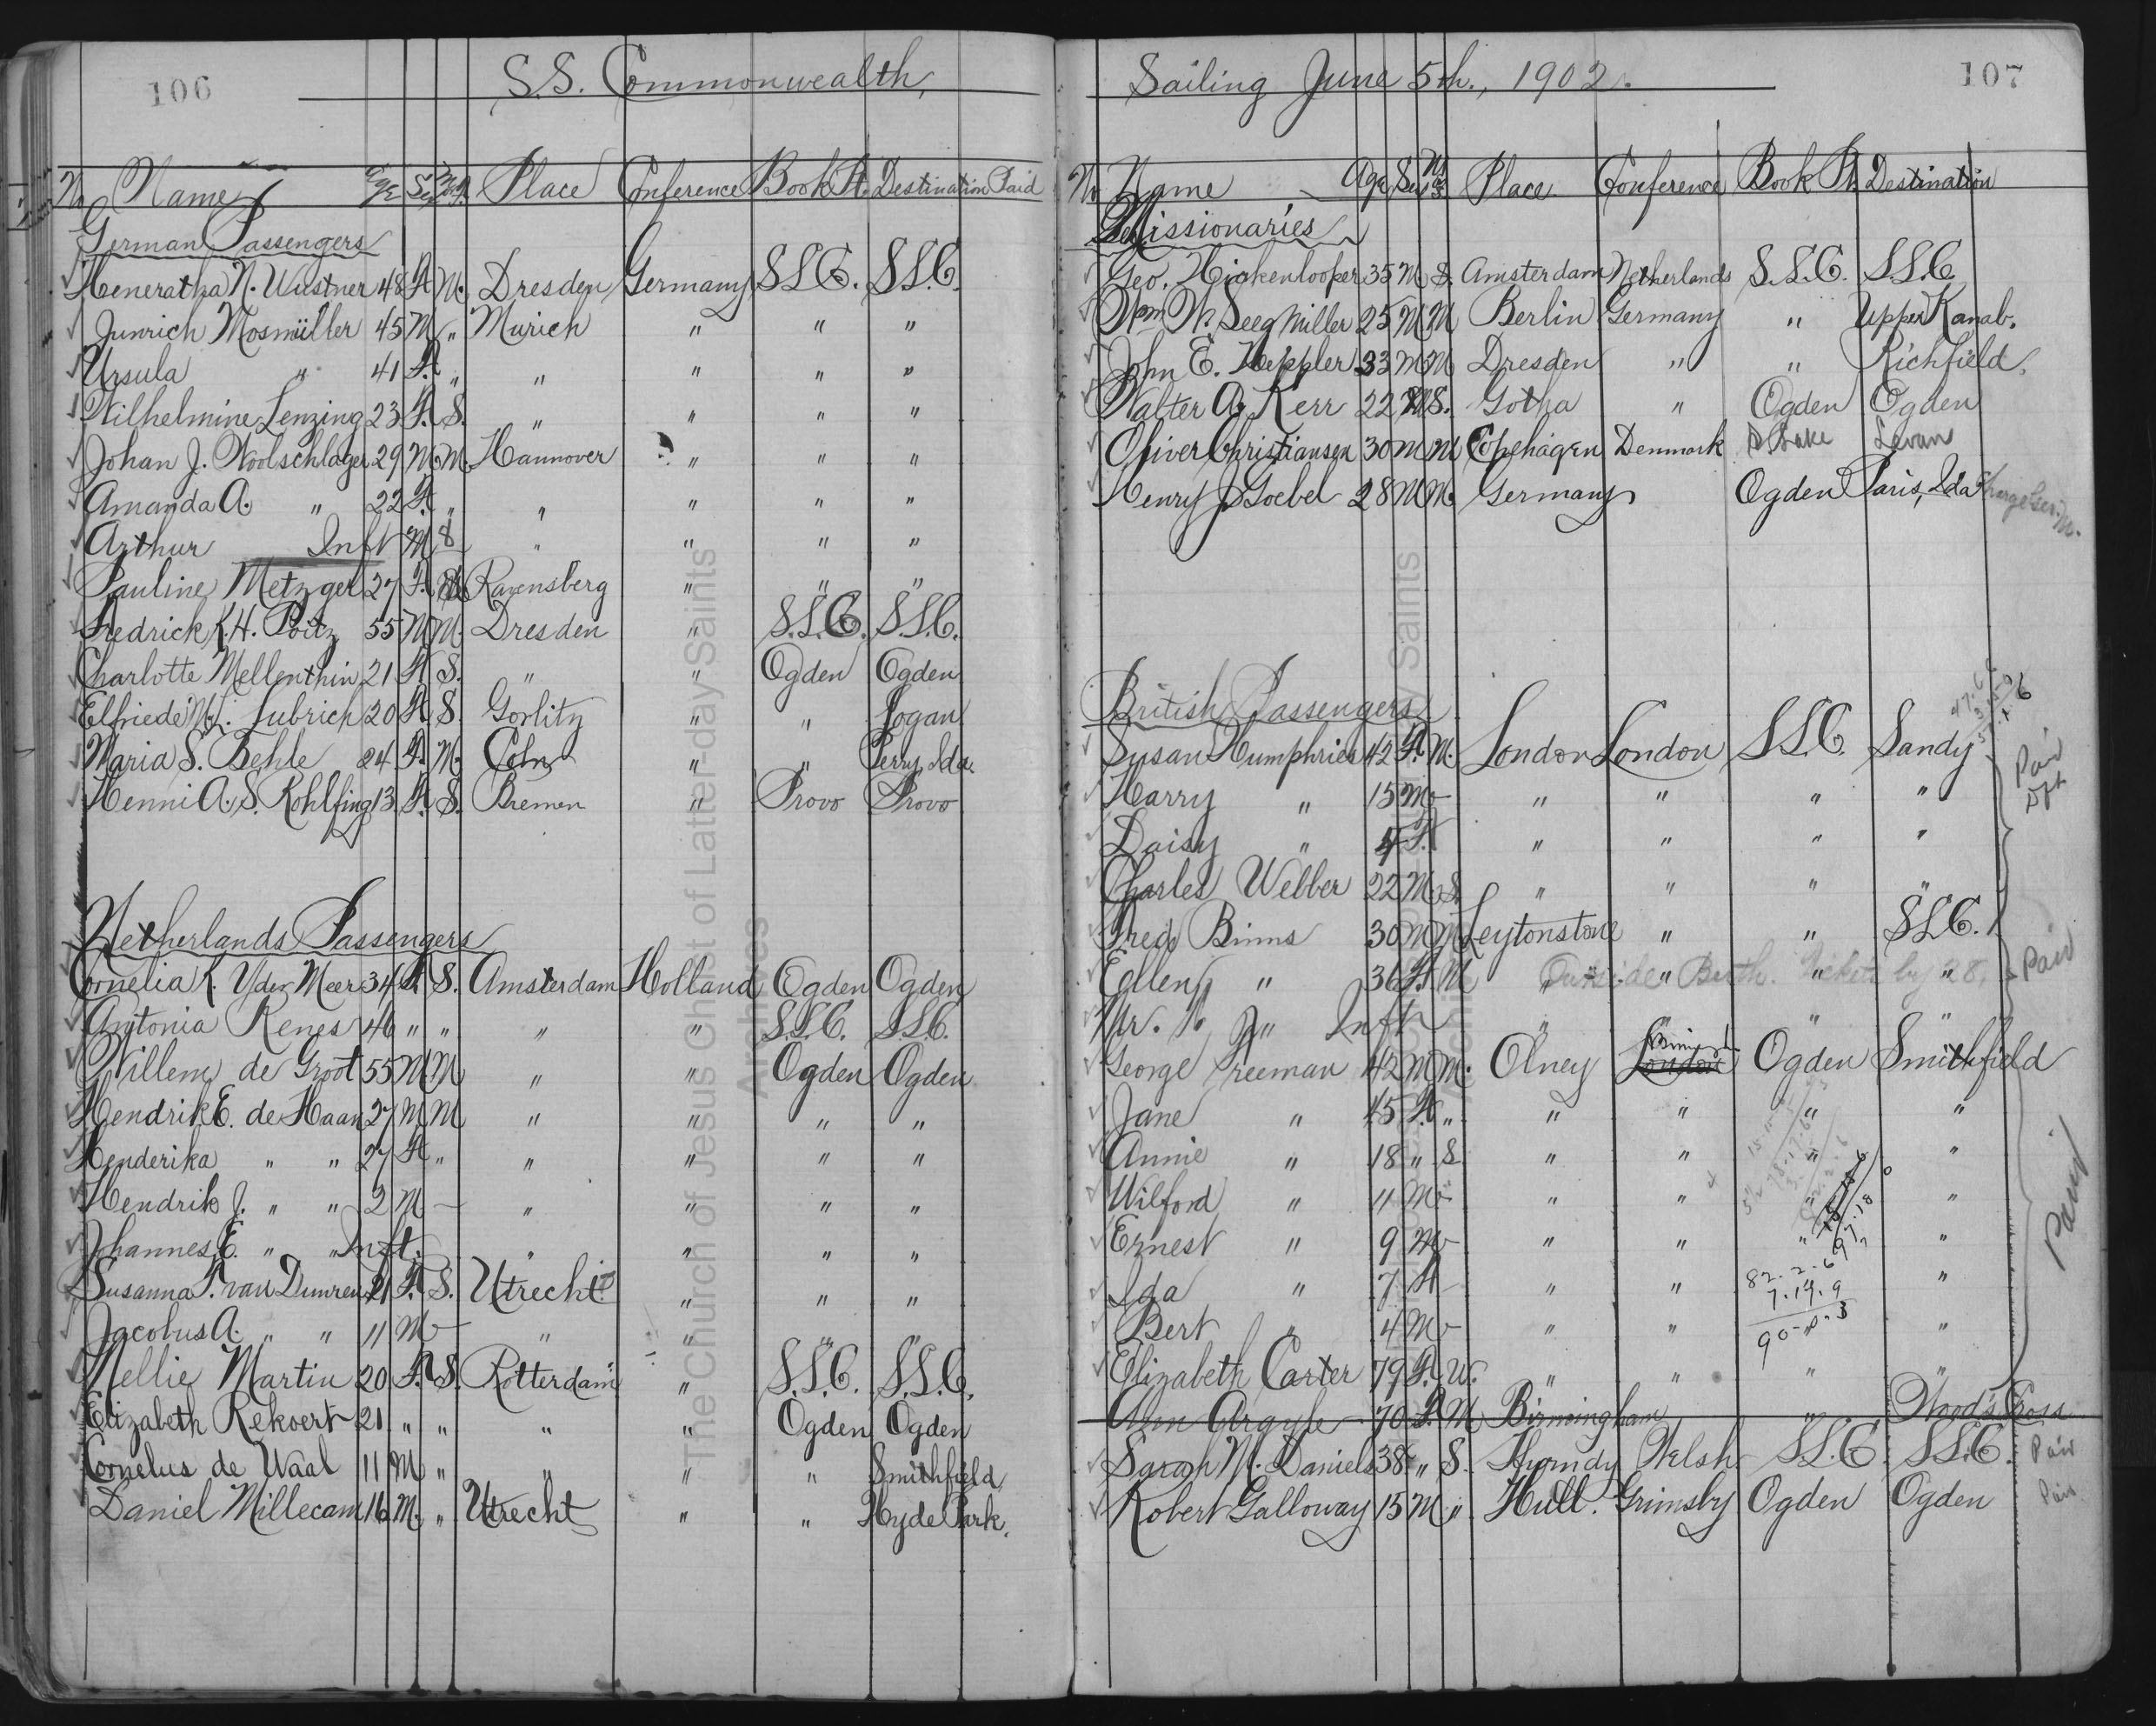 106
S.S. Commonwealth,
No Name Age Sex Place Conference Book Pt. Destination Paid
German Passengers
Heneratha N. Wustner 48 F. M. Dresden Germany S.L.C. S.L.C.
Junrich Mosmüller 45 M " Munich " " "
Ursula " 41 F. " " " " "
Wilhelmine Lenzing 23 F. S. " " " "
Johan J. Woolschlager 29 M. M. Hannover " " "
Amanda A. " 22 F. " " " " "
Arthur Inft M 8 " " " "
Pauline Metzger 27 F. Ravensberg " " "
Fredrick K. H. Poitz 55 M M. Dresden " S.L.C. S.L.C.
Charlotte Mellenthin 21 F. S. " " Ogden Ogden
Elfriede M. Lubrich 20 F. S. Gorlitz " " Logan
Maria S. Behle 24 F. M. Coln " " Perry, Ida.
Henni A. S. Kohlfing 13 F. S. Bremen " Provo Provo
Netherlands Passengers
Cornelia K. V/der Meer 34 F. S. Amsterdam Holland Ogden Ogden
Antonia Renes 46 " " " " S.L.C. S.L.C.
Willem de Groot 55 M M " " Ogden Ogden
Hendrik E. de Haan 27 M M " " " "
Henderika " " 27 F. " " " " "
Hendrik J. " " 2 M — " " " "
Johannes E. " " Inft. " " " "
Susanna P. van Dunren 21 F. S. Utrecht " " "
Jacobus A. " " 11 M — " " " "
Nellie Martin 20 F. S. Rotterdam " S.L.C. S.L.C.
Elizabeth Rekoert 21 " " " " Ogden Ogden
Cornelus de Waal 11 M " " " " Smithfield
Daniel Millecam 16 M. " Utrecht " " Hyde Park.
107
Sailing June 5th., 1902.
No Name Age Sex Place Conference Book Pt. Destination
Missionaries
Geo. Hickenlooper 35 M S. Amsterdam Netherlands S.L.C. S.L.C.
Wm W. Seegmiller 25 M M Berlin Germany " Upper Kanab.
John E. Heppler 33 M M Dresden " " Richfield.
Walter A. Kerr 22 M S. Gotha " Ogden Ogden
Oliver Christiansen 30 M M Copehagen Denmark S Lake Levan
Henry J Goebel 28 M M. Germany Ogden Paris, Ida
British Passengers
Susan Humphries 42 F. M. London London S.L.C. Sandy
Paid
Harry " 15 M — " " " "
Daisy " 4 F. " " " "
Charles Webber 22 M S. " " " "
Fred Binns 30 M M Leytonstone " " S.L.C.
Ellen " 36 F. M " " " " Paid
Outside Berth. Tickets by 28.
" Inft " " " "
George Freeman 42 M M. Olney London Ogden Smithfield
Jane " 45 F. " " " " "
Annie " 18 " S " " " "
Wilford " 11 M — " " "
Ernest " 9 M — " " " "
Ida " 7 F — " " "
82-2-6
7.19.9
Bert " 4 M — " " "
Paid
Elizabeth Carter 79 F. W. " " " "
Ann Argyle 70 F. M. Birmingham " Wood's Cross
Sarah M. Daniels 38 " S. Welsh S.L.C. S.L.C. Paid
Robert Galloway 15 M " Hull. Grimsby Ogden Ogden Paid
The Church of Jesus Christ of Latter-day Saints
Archives